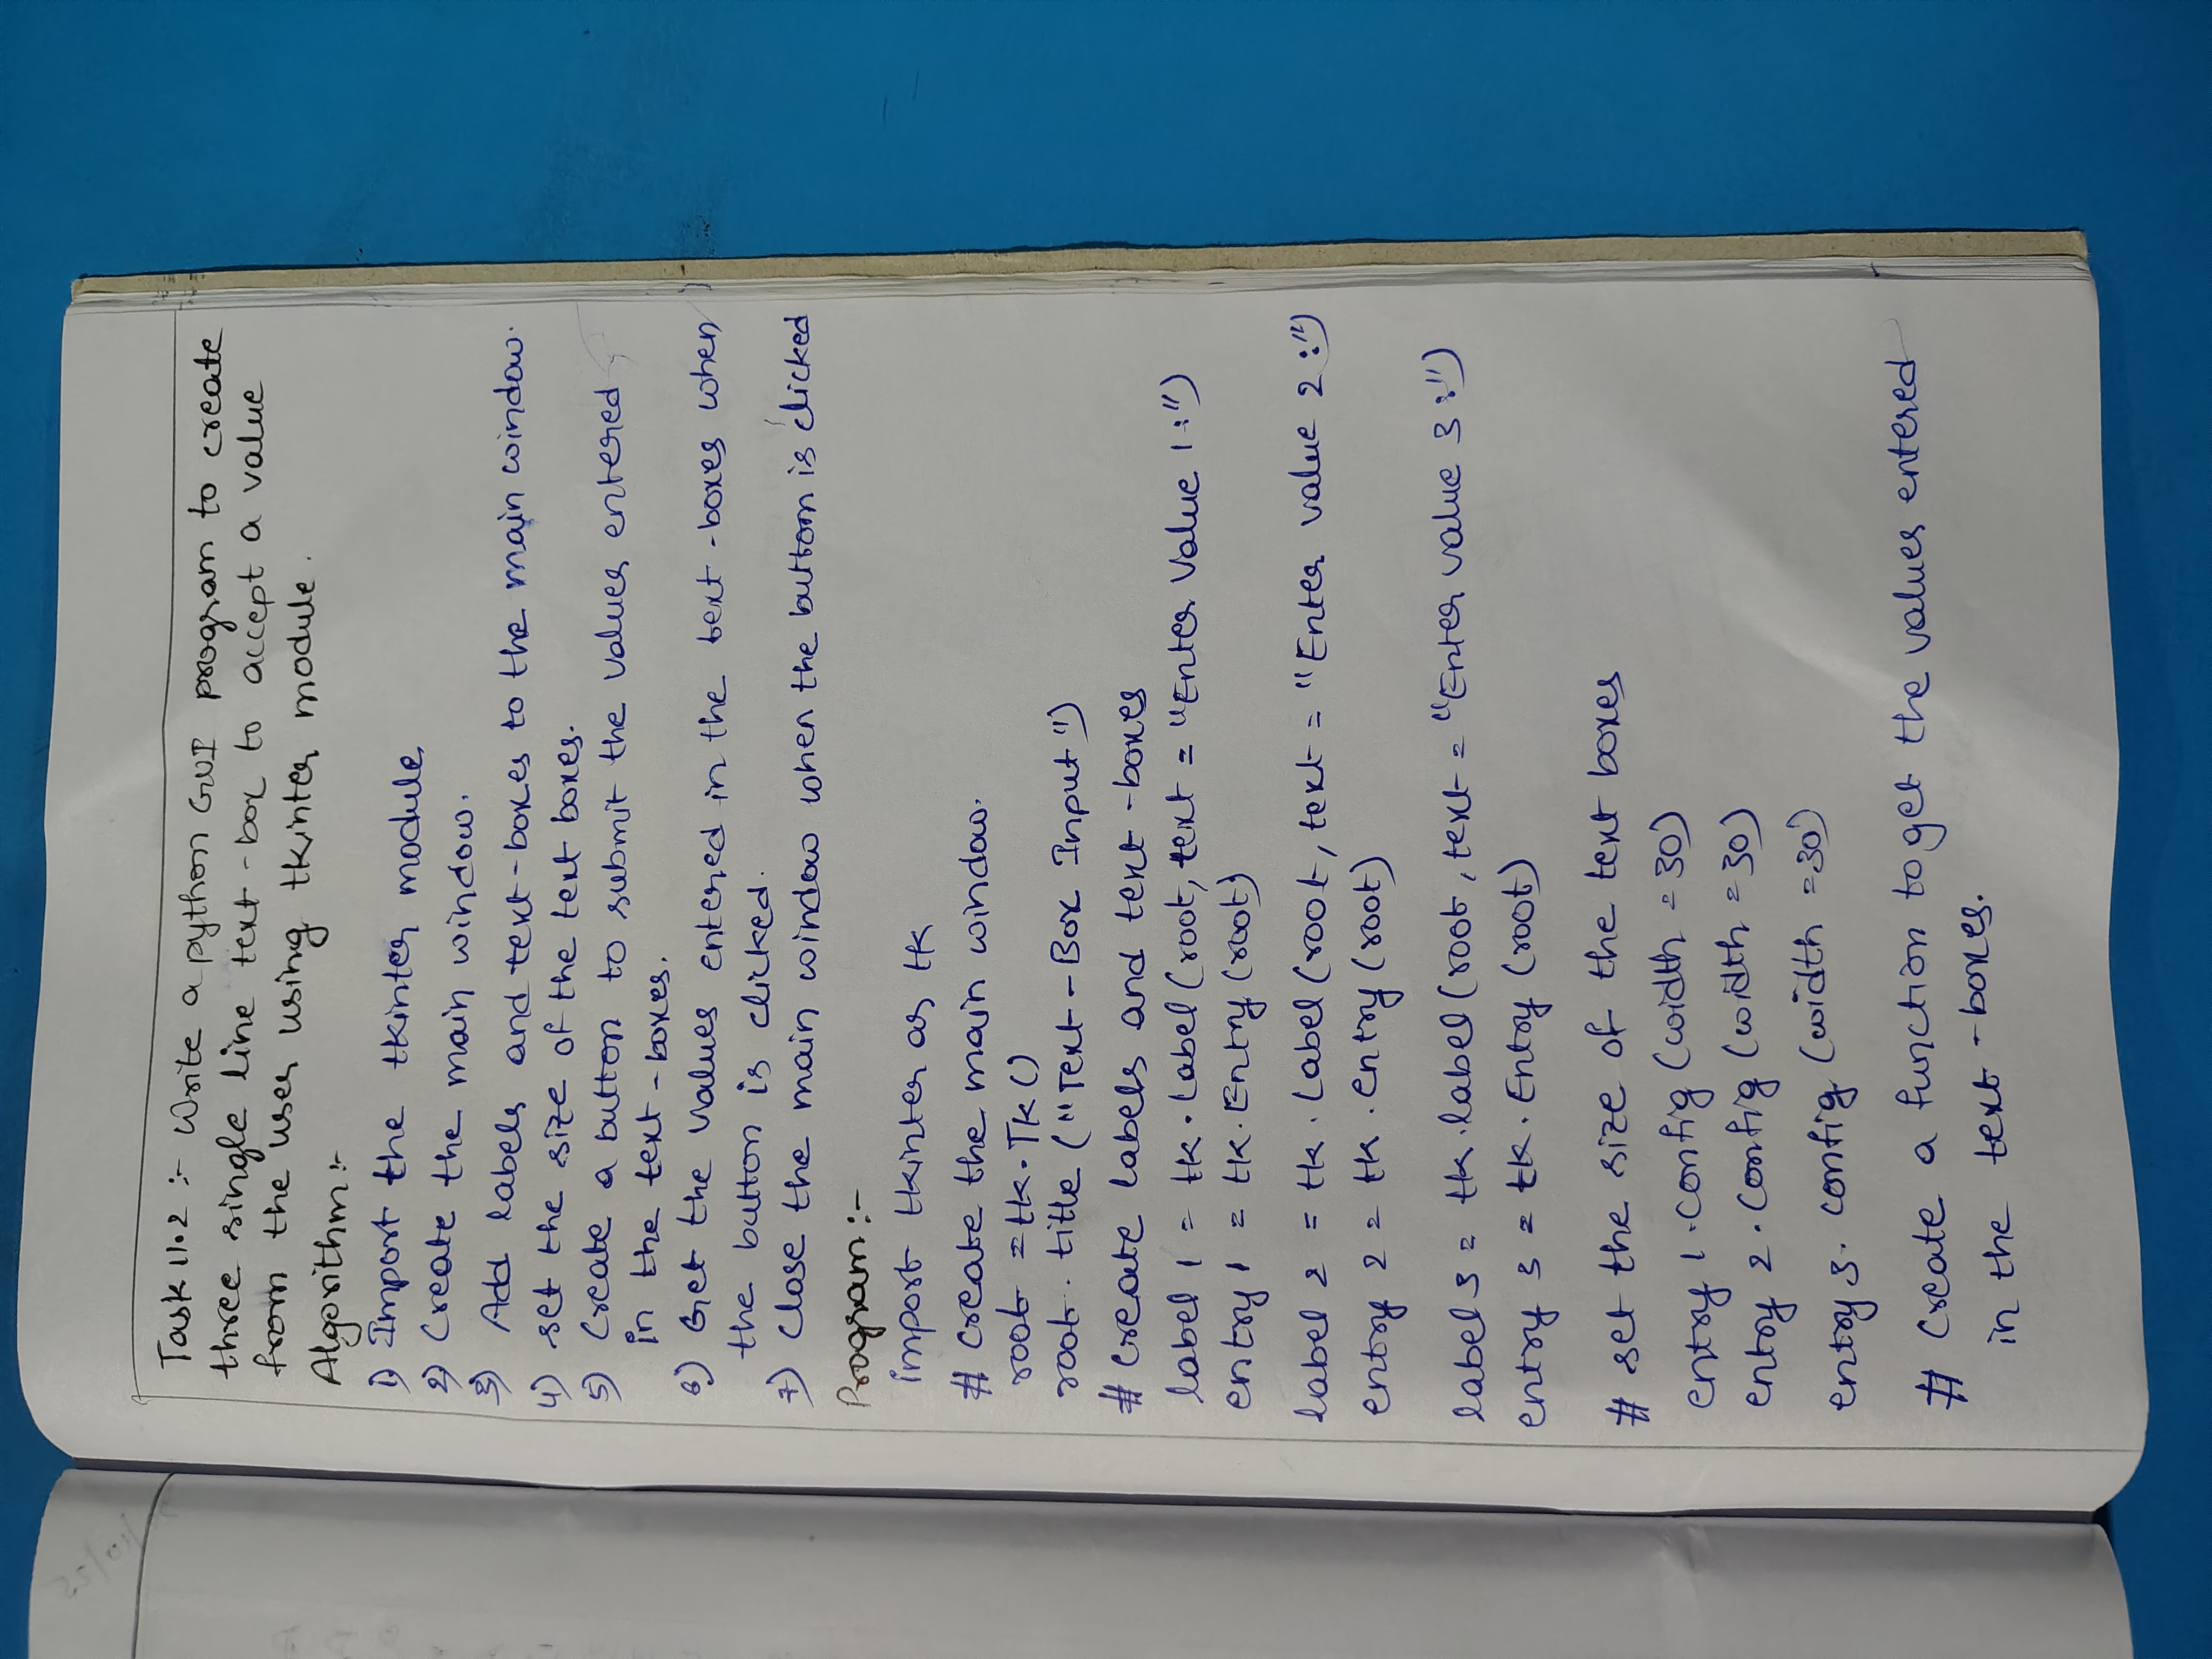 Task 11.2 :- Write a python GUI program to create
three single line text-box to accept a value
from the user using tkinter module.
Algorithm :-
1) Import the tkinter module
2) Create the main window.
3) Add labels and text-boxes to the main window.
4) set the size of the text boxes.
5) Create a button to submit the values entered
in the text-boxes.
6) Get the values entered in the text-boxes when
the button is clicked.
7) Close the main window when the buttom is clicked
Program :-
import tkinter as tk
# create the main window.
root = tk.Tk()
root.title ("Text-Box Input")
# create labels and text-boxes
label 1 = tk.Label (root, text = "Enter Value 1:")
entry 1 = tk.Entry (root)
label 2 = tk.Label (root, text = "Enter value 2:")
entry 2 = tk.entry (root)
label 3 = tk.label (root, text = "Enter value 3:")
entry 3 = tk.Entry (root)
# set the size of the text boxes
entry 1.config (width = 30)
entry 2.config (width = 30)
entry 3.config (width = 30)
# Create a function to get the values entered
in the text-boxes.